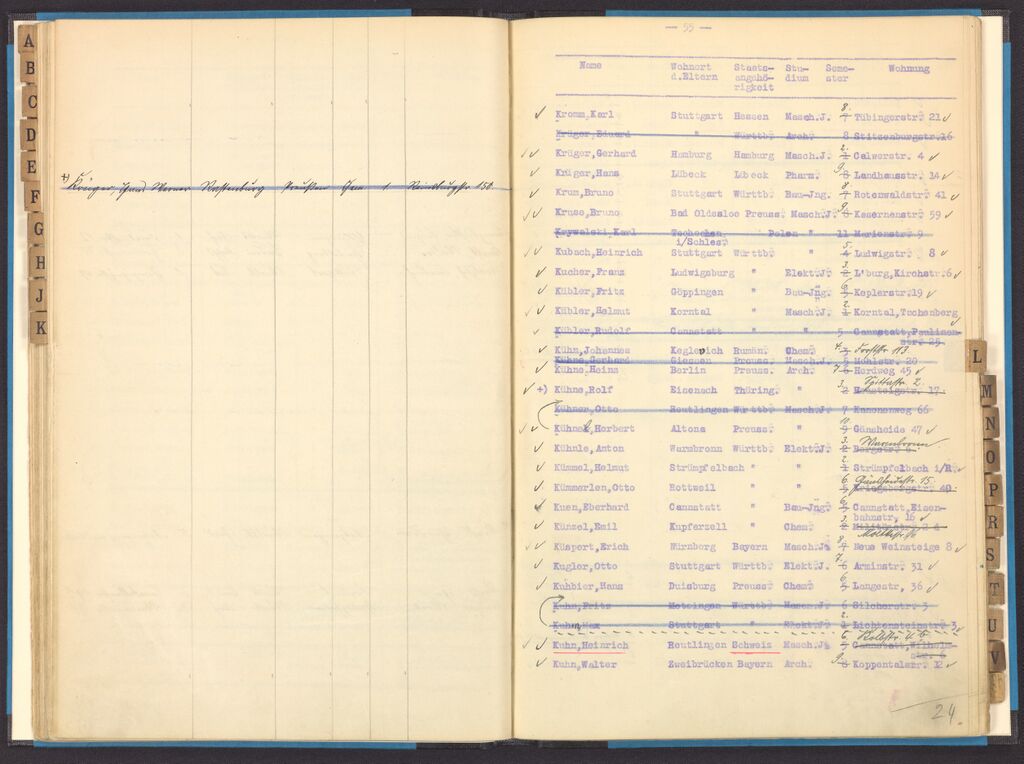 A
B
C
D
E
F
G
H
J
K
+) Krüger, Werner Rastenburg Preußen 1 150.
— 55 —
Name Wohnort d.Eltern Staats-angehö-rigkeit Stu-dium Seme-ster Wohnung
✓ Kromm,Karl Stuttgart Hessen Masch.J. 8. 7 Tübingerstr. 21 ✓
Krüger,Eduard " Württb. Arch. 8 Stitzenburgstr.16
✓✓ Krüger,Gerhard Hamburg Hamburg Masch.J. 2. 1 Calwerstr. 4 ✓
✓ Krüger,Hans Lübeck Lübeck Pharm. 9. 8 Landhausstr. 14 ✓
✓ Krum,Bruno Stuttgart Württb. Bau-Jng. 8. 7 Rotenwaldstr. 41 ✓
✓✓ Kruse,Bruno Bad Oldesloe Preuss. Masch.J. 9. 8 Kasernenstr. 59 ✓
Krywalski,Karl Polen " 11 Marienstr. 9
i/Schles.
✓✓ Kubach,Heinrich Stuttgart Württb. " 5. 4 Ludwigstr. 8 ✓
✓ Kucher,Franz Ludwigsburg " Elekt.J. 3. 2 L'burg,Kirchstr.6 ✓
✓ Kübler,Fritz Göppingen " Bau-Jng. 6. 5 Keplerstr.19 ✓
✓ Kübler,Helmut Korntal " Masch.J. 2. 1 Korntal,Tuchenberg ✓
✓ Kübler,Rudolf Cannstatt " " 5 Cannstatt,Paulinen-
str. 25
✓ Kühn,Johannes Keglevich Rumän. Chem. 4. 3 Forststr. 113.
Kühne,Gerhard Giessen Preuss. Masch.J. 5 Mohlstr. 20
Kühne,Heinz Berlin Preuss. Arch. 7. 6 Herdweg 45 ✓
✓ +) Kühne,Rolf Eisenach Thüring. " 3. 2 Hohensteigstr. 17. Spittastr. 2.
Kühner,Otto Reutlingen Württb. Masch.J. 7 Kanonenweg 66
✓✓ Kühnel,Herbert Altona Preuss. " 10. 9 Gänsheide 47 ✓
✓ Kühnle,Anton Warmbronn Württb. Elekt.J. 3. 2 Bergstr. 6 Warmbronn
✓ Kümmel,Helmut Strümpfelbach " " 2. 1 Strümpfelbach i/R. ✓
✓ Kümmerlen,Otto Rottweil " " 6. 5 Kriegsbergstr. 40. 15.
✓ Kuen,Eberhard Cannstatt " Bau-Jng. 6. 5 Cannstatt,Eisen-
bahnstr. 16 ✓
✓ Künzel,Emil Kupferzell " Chem. 3. 2 Militärstr.
✓✓ Küspert,Erich Nürnberg Bayern Masch.J. 8. 7 Neue Weinsteige 8 ✓
✓ Kugler,Otto Stuttgart Württb. Elekt.J. 7. 6 Arminstr. 31 ✓
✓ Kuhbier,Hans Duisburg Preuss. Chem. 6. 5 Langestr. 36 ✓
Kuhn,Fritz Metzingen Württb. Masch.J. 6 Silcherstr. 3
Kuhn,Max Stuttgart " Elekt.J. 2. 1 Lichtensteinstr. 3 ✓
✓✓ Kuhn,Heinrich Reutlingen Schweiz Masch.J. 6. 5 Cannstatt,Wilhelm-
str. 6
✓ Kuhn,Walter Zweibrücken Bayern Arch. 9. 8 Koppentalstr. 12 ✓
24.
L
M
N
O
P
R
S
T
U
V